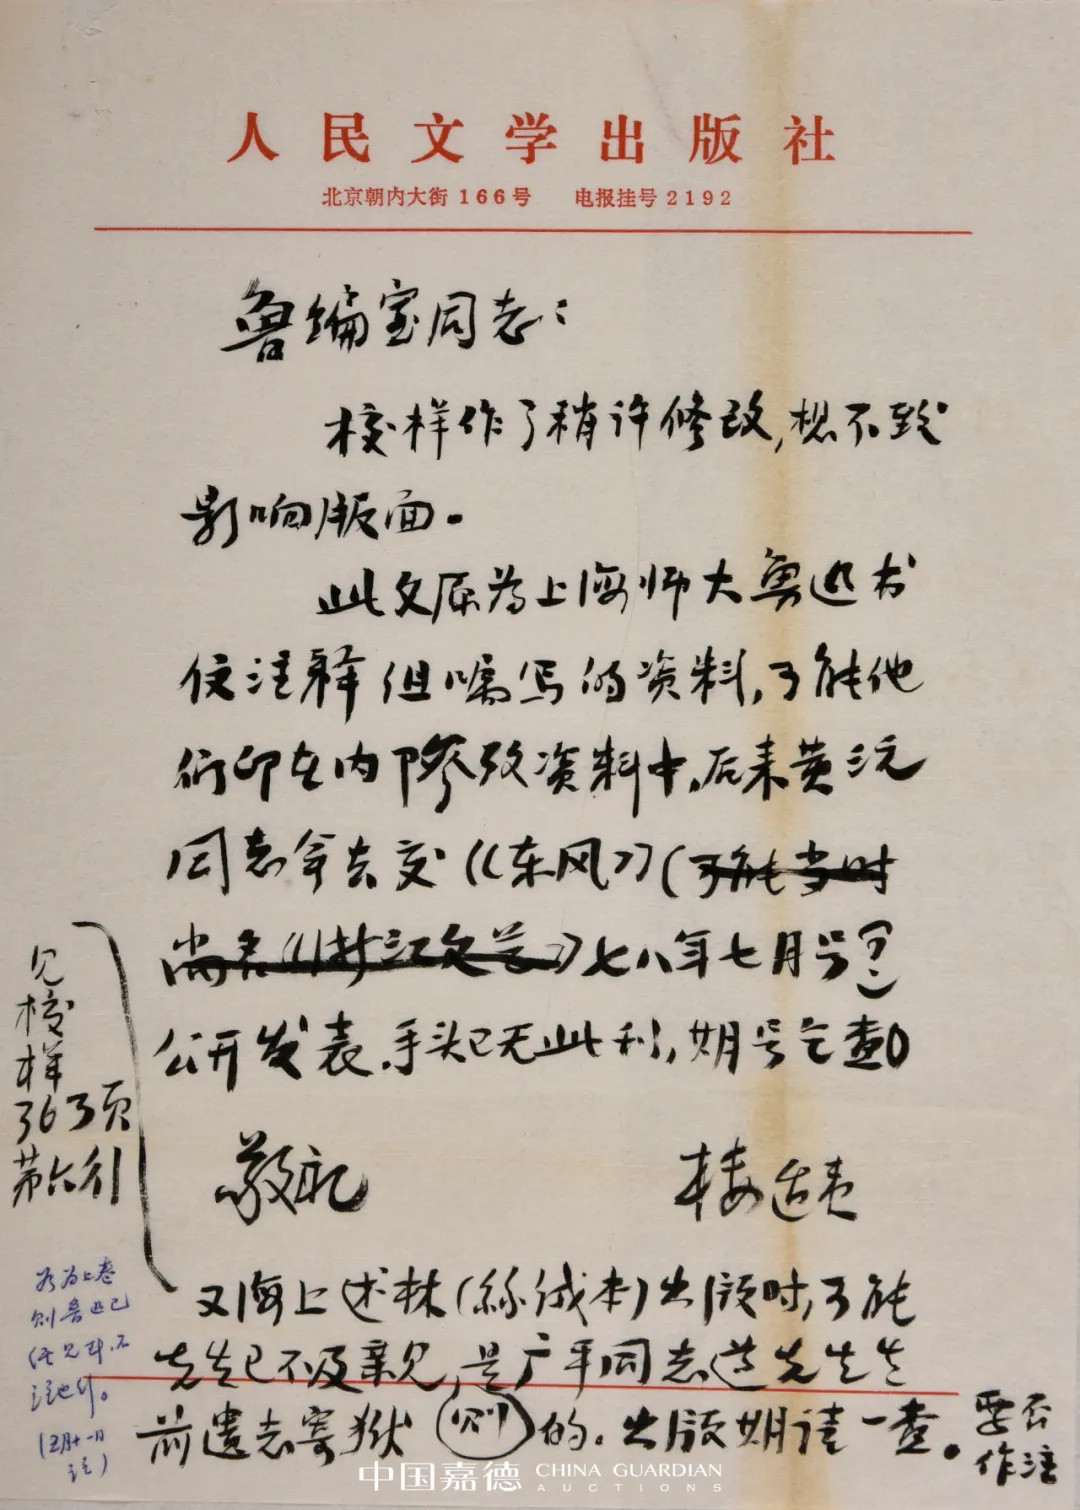 人民文学出版社
北京朝内大街166号 电报挂号2192
鲁编室同志：
校样作了稍许修改，想不致
影响版面。
此文原为上海师大鲁迅书
信注释组嘱写的资料，可能他
们印在内部参考资料中，后来黄源
同志拿去交《东风》（可能当时
尚名《浙江文艺》）七八年七月号（？）
公开发表，手头已无此刊，期号乞查
敬礼
楼适夷
又海上述林（絲绒本）出版时，可能
先生已不及亲见，是广平同志遵先生生
前遗志寄狱 的。出版期请一查。
要否
作注
见
校
样
363页
第六行
若为上卷
则鲁迅已
注也行。
中国嘉德 CHINA GUARDIAN
AUCTIONS